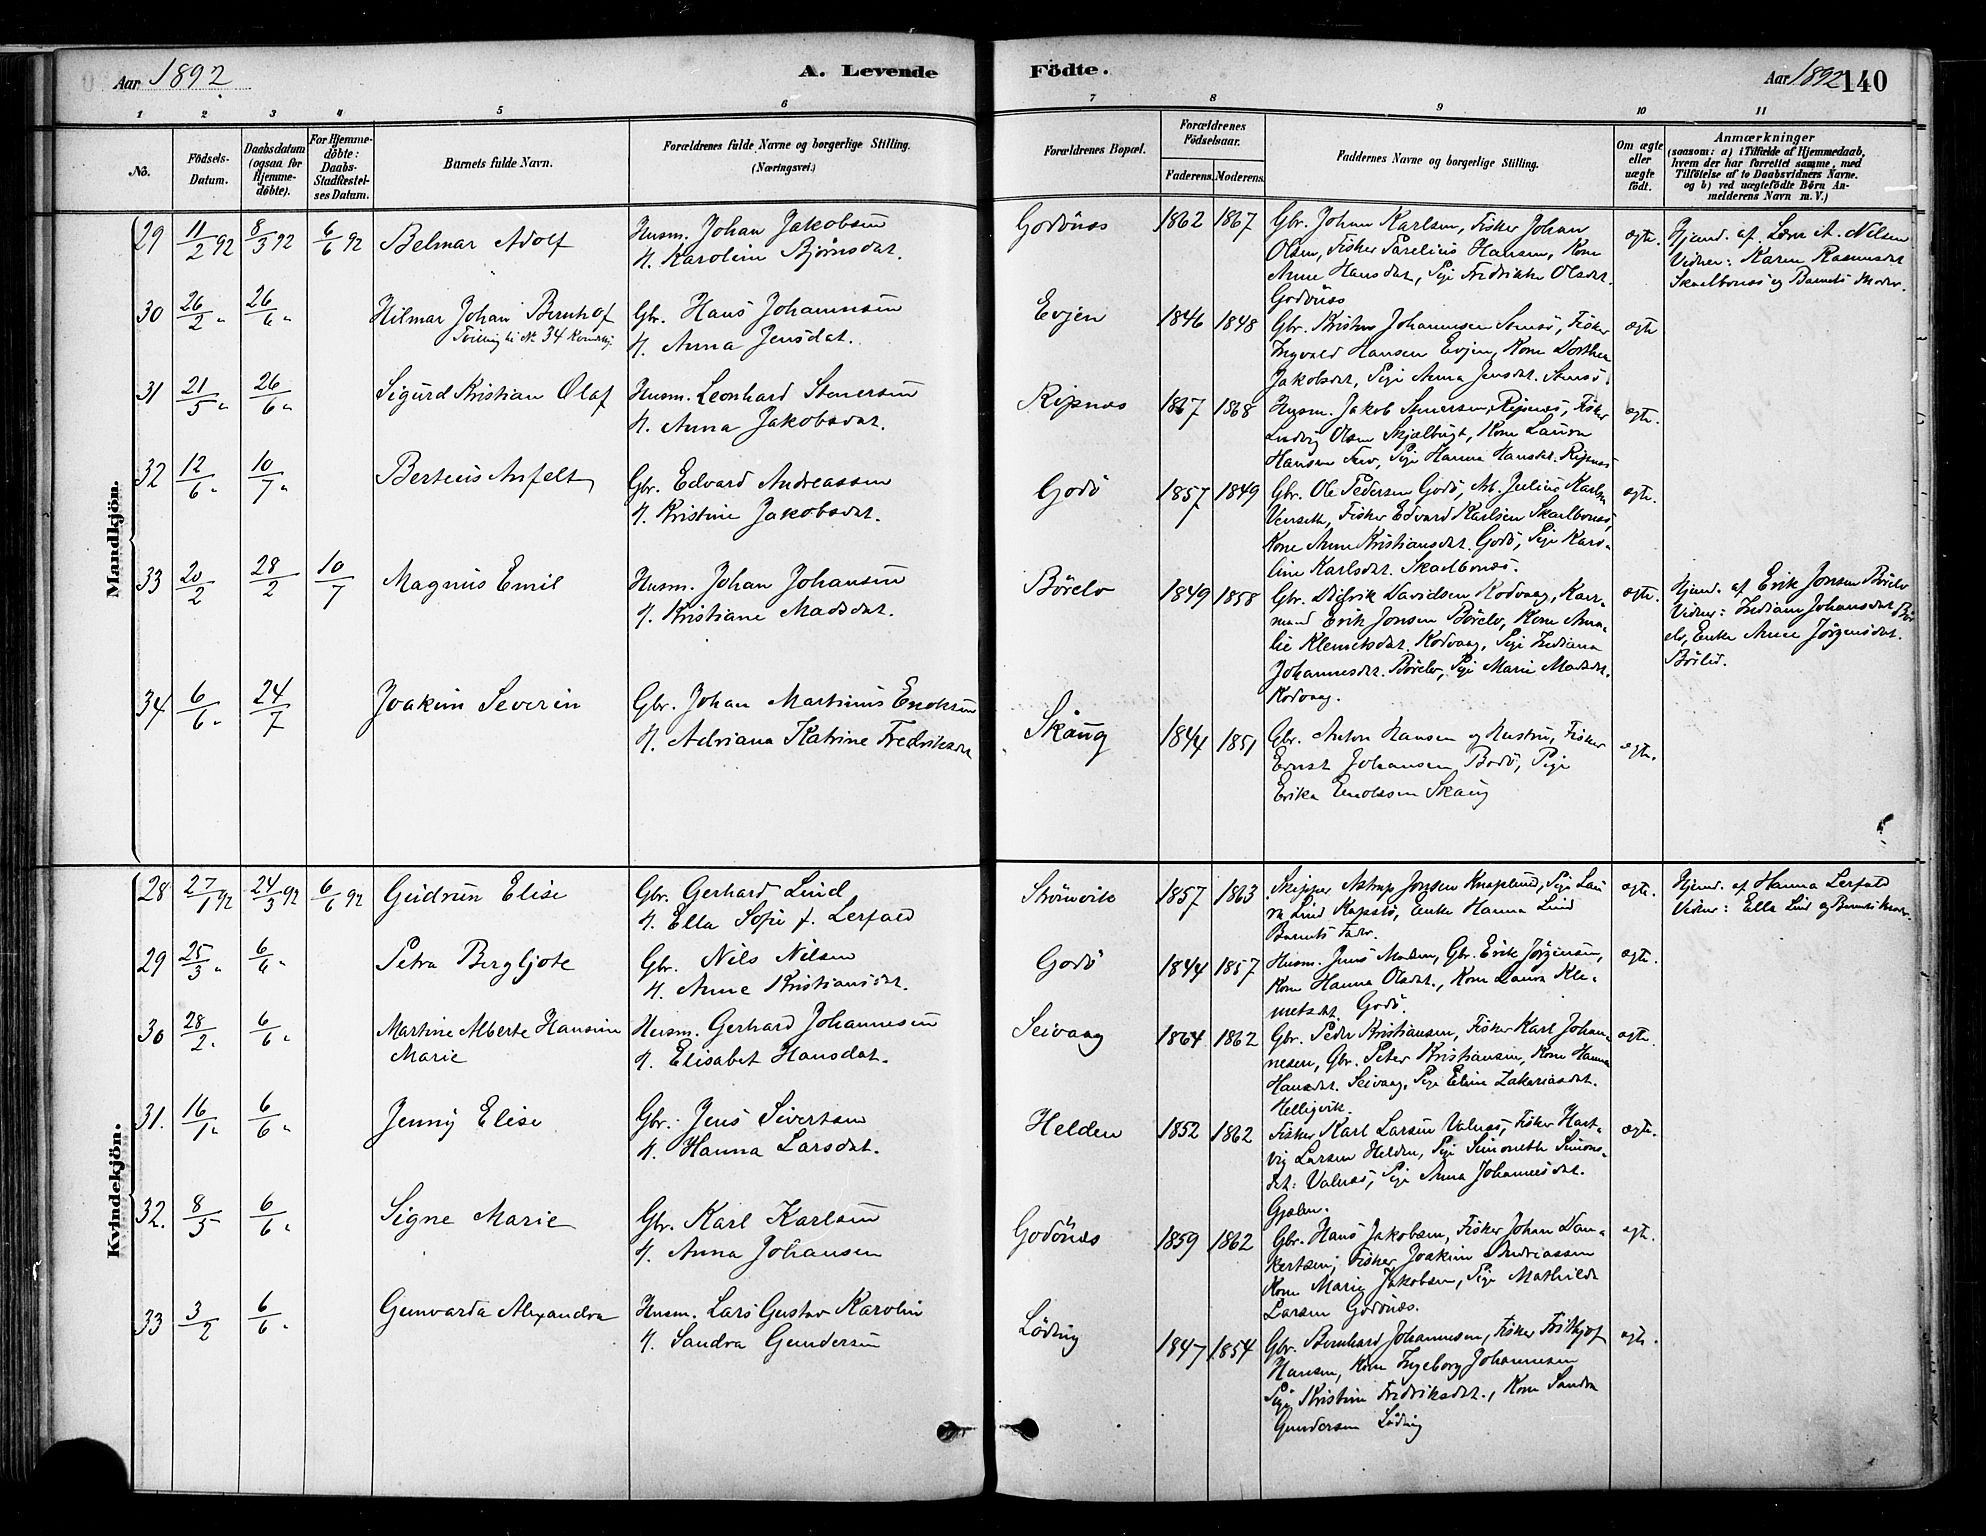 Aar 1892
A. Levende
Födte.
Aar 1892 140
1 2 3 4 5 6 7 8 9 10 11
No.
Födsels-
Datum.
Daabsdatum
(ogsaa for
Hjemme-
döbte).
For Hjemme-
döbte:
Daabs-
Stadfestel-
ses Datum.
Barnets fulde Navn.
Forældrenes fulde Navne og borgerlige Stilling.
(Næringsvei.)
Forældrenes Bopæl.
Forældrenes
Födselsaar.
Faderens. Moderens.
Faddernes Navne og borgerlige Stilling.
Om ægte
eller
uægte
födt.
Anmærkninger
(saasom: a) i Tilfælde af Hjemmedaab,
hvem der har forrettet samme, med
Tilföielse af to Daabsvidners Navne.
og b) ved uægtefödte Börn An-
melderens Navn m. V.)
Mandkjön.
29 11/2 92 8/3 92 6/6 92 Belmar Adolf
Husm. Johan Jakobsen
H. Karoline Bjørnsdat.
Godönes 1862 1867
Gbr. Johan Karlsen, Fisker Johan
Olsen, Fisker Parelius Hansen, Kone
Anne Hansdat, Pige Fredrikke Olsdat.
Godönes
ægte.
Hjemd. af Nilsen
Vidner: Karen Rasmusdat
Skaalbones og Barnets Moder.
30 26/2 " 26/6 " Hilmar Johan Bernhof
Tvilling til No 34 Kvindekj.
Gbr. Hans Johannesen
H. Anna Jensdat.
Evjen 1846 1848
Gbr. Kristen Johannesen, Fisker
Ingvald Hansen Evjen, Kone Dorthea
Jakobsdat, Pige Anna Jensdat.
ægte
31 21/5 " 26/6 " Sigurd Kristian Olaf
Husm. Leonhard Stenersen
H. Anna Jakobsdat.
Ripnes 1867 1868
Husm. Jakob Stenersen Ripnes, Fisker
Ludvig Olsen Skjælbugt, Kone Laura
Hansen, Pige Hanna Hansdat. Ripnes
ægte.
32 12/6 " 10/7 " Berteus Arfelt
Gbr. Edvard Andreassen
H. Kristine Jakobsdat.
Godö 1857 1849
Gbr. Ole Pedersen Godö, Arb. Julius Karlsen
Venseth, Fisker Edvard Karlsen Skaalbones,
Kone Anne Kristiansdat. Godö, Pige Karo-
line Karlsdat. Skaalbones.
ægte.
33 20/2 28/2 10/7 Magnus Emil
Husm. Johan Johansen
H. Kristiane Madsdat.
Börelv 1849 1858
Gbr. Didrik Davidsen Kodvaag, Kar-
mand Erik Jonsen Börelv, Kone Ama-
lie Klemetsdat. Kodvaag, Pige Indiana
Johannesdat. Börelv, Pige Marie Madsdat.
Kodvaag.
ægte.
Hjemd. af Erik Jonsen Börelv
Vidner: Indiane Johansdat Bör-
elv, Enke Anne Jörgensdat.
34 6/6 " 24/7 Joakim Severin
Gbr. Johan Martinus Enoksen
H. Adriana Katrine Fredriksdat
Skaug 1844 1851
Gbr. Anton Hansen og Hustru, Fisker
Ernst Johansen Bodö, Pige
Erika Enoksen Skaug
ægte.
Kvindekjön.
28 27/1 92 24/3 92 6/6 92 Gudrun Elise
Gbr. Gerhard Lind
H. Ella Sofie f. Lerfald
Strömvik 1857 1863
Skipper Astrup Jonsen Knaplund, Pige Lau-
ra Lind Kapstö, Enke Hanna Lind
Barnets Fader.
ægte.
Hjemd. af Hanna Lerfald
Vidner: Ella Lind og Barnets Moder.
29 25/3 " 6/6 " Petra Bergljote
Gbr. Nils Nilsen
H. Anne Kristiansdat.
Godö 1844 1857
Husm. Jens Madsen, Gbr. Erik Jörgensen,
Kone Hanna Olsdat., Kone Laura Kle-
metsdat. Godö.
ægte.
30 28/2 " 6/6 " Martine Alberte Hansine
Marie
Husm. Gerhard Johannesen
H. Elisabet Hansdat.
Seivaag 1864 1862
Gbr. Peder Kristiansen, Fisker Karl Johan-
nesen, Gbr. Peter Kristiansen, Kone Hanna
Hansdat. Seivaag, Pige Eline Zakariasdat.
Helligvik.
ægte.
31. 16/1 " 6/6 " Jenny Elise
Gbr. Jens Sivertsen
H. Hanna Larsdat.
Helden 1852 1862
Fisker Karl Larsen Valnes, Fisker Hart-
vig Larsen Helden, Pige Simoneth Simons-
dat: Valnes, Pige Anna Johannesdat.
Gjælen.
ægte.
32. 8/5 6/6 " Signe Marie
Gbr. Karl Karlsen
H. Anna Johansen
Godönes 1859 1862
Gbr. Hans Jakobsen, Fisker Johan Dan-
kertsen, Fisker Joakim Andreassen
Kone Marie Jakobsen, Pige Mathilde
Larsen Godönes.
ægte.
33 3/2 6/6 " Gunvarda Alexandra
Husm. Lars Gustav Karolin
H. Sandra Gundersen
Löding 1847 1854
Gbr. Bernhard Johannesen, Fisker Frithjof
Hansen, Kone Ingeborg Johannesen
Pige Kristine Fredriksdat., Kone Sandra
Gundersen Löding
ægte.